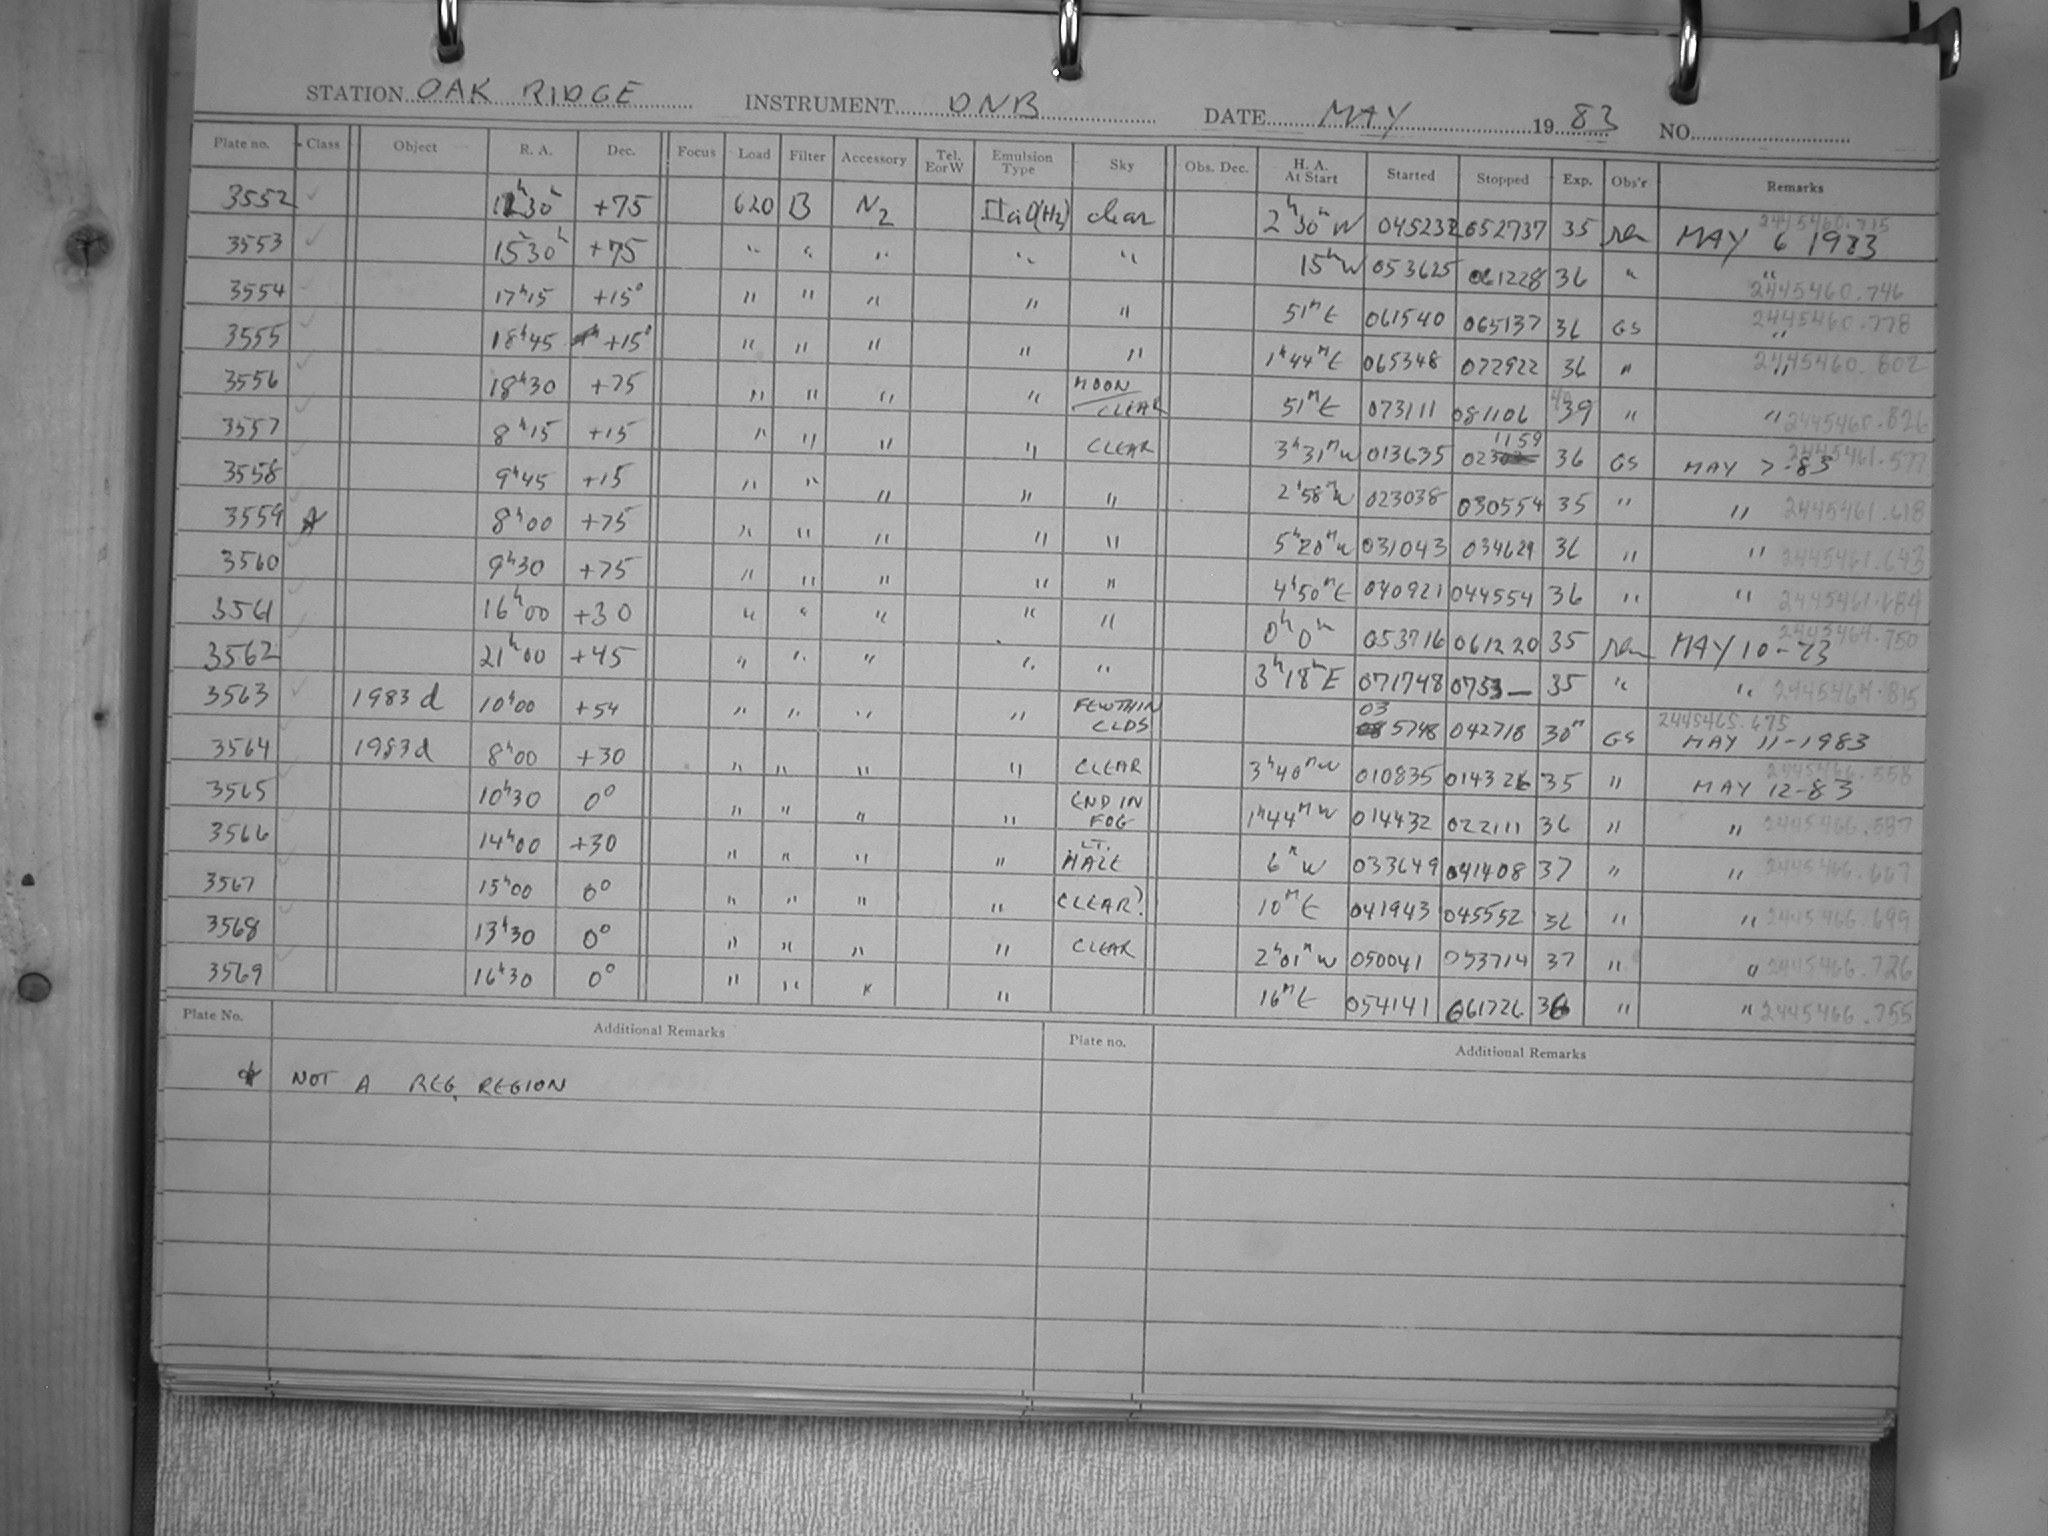 STATION OAK RIDGE INSTRUMENT DNB DATE MAY 1983 NO.
Plate no. Class Object R. A. Dec. Focus Load Filter Accessory Tel. E or W Emulsion Type Sky Obs. Dec. H. A. At Start Started Stopped Exp. Obs'r Remarks
3552 ✓ 30 +75 620 B N2 IIaO(H2) clear 2h30m W 045232 052737 35 2445460.715 MAY 6 1983
3553 ✓ 15h30 +75 " " " " " 15m W 053625 061228 36 " " 2445460.746
3554 ✓ 17h15 +15° " " " " " 51m E 061540 065137 36 GS " 2445460.778
3555 ✓ 18h45 +15° " " " " " 1h44m E 065348 072922 36 " " 2445460.802
3556 ✓ 18h30 +75 " " " " MOON/CLEAR 51m E 073111 081106 39 " " 2445460.826
3557 ✓ 8h15 +15 " " " " CLEAR 3h31m W 013635 02 1159 36 GS 2445461.577 MAY 7-83
3558 ✓ 9h45 +15 " " " " " 2h58m W 023038 030554 35 " " 2445461.618
3559 * 8h00 +75 " " " " " 5h20m W 031043 034629 36 " " 2445461.643
3560 ✓ 9h30 +75 " " " " " 4h50m E 040921 044554 36 " " 2445461.684
3561 ✓ 16h00 +30 " " " " " 0h0m 053716 061220 35 2445464.750 MAY 10-83
3562 ✓ 21h00 +45 " " " " " 3h18m E 071748 0753— 35 " " 2445464.815
3563 ✓ 1983d 10h00 +54 " " " " FEW THIN CLDS 03 5748 042718 30m GS 2445465.675 MAY 11-1983
3564 ✓ 1983d 8h00 +30 " " " " CLEAR 3h40m W 010835 014326 35 " 2445466.558 MAY 12-83
3565 ✓ 10h30 0° " " " " END IN FOG 1h44m W 014432 022111 36 " " 2445466.587
3566 ✓ 14h00 +30 " " " " LT. HAZE 6m W 033649 041408 37 " " 2445466.667
3567 ✓ 15h00 0° " " " " CLEAR? 10m E 041943 045552 36 " " 2445466.699
3568 ✓ 13h30 0° " " " " CLEAR 2h01m W 050041 053714 37 " " 2445466.726
3569 ✓ 16h30 0° " " " " 16m E 054141 061726 36 " " 2445466.755
Plate No. Additional Remarks Plate no. Additional Remarks
* NOT A REG. REGION